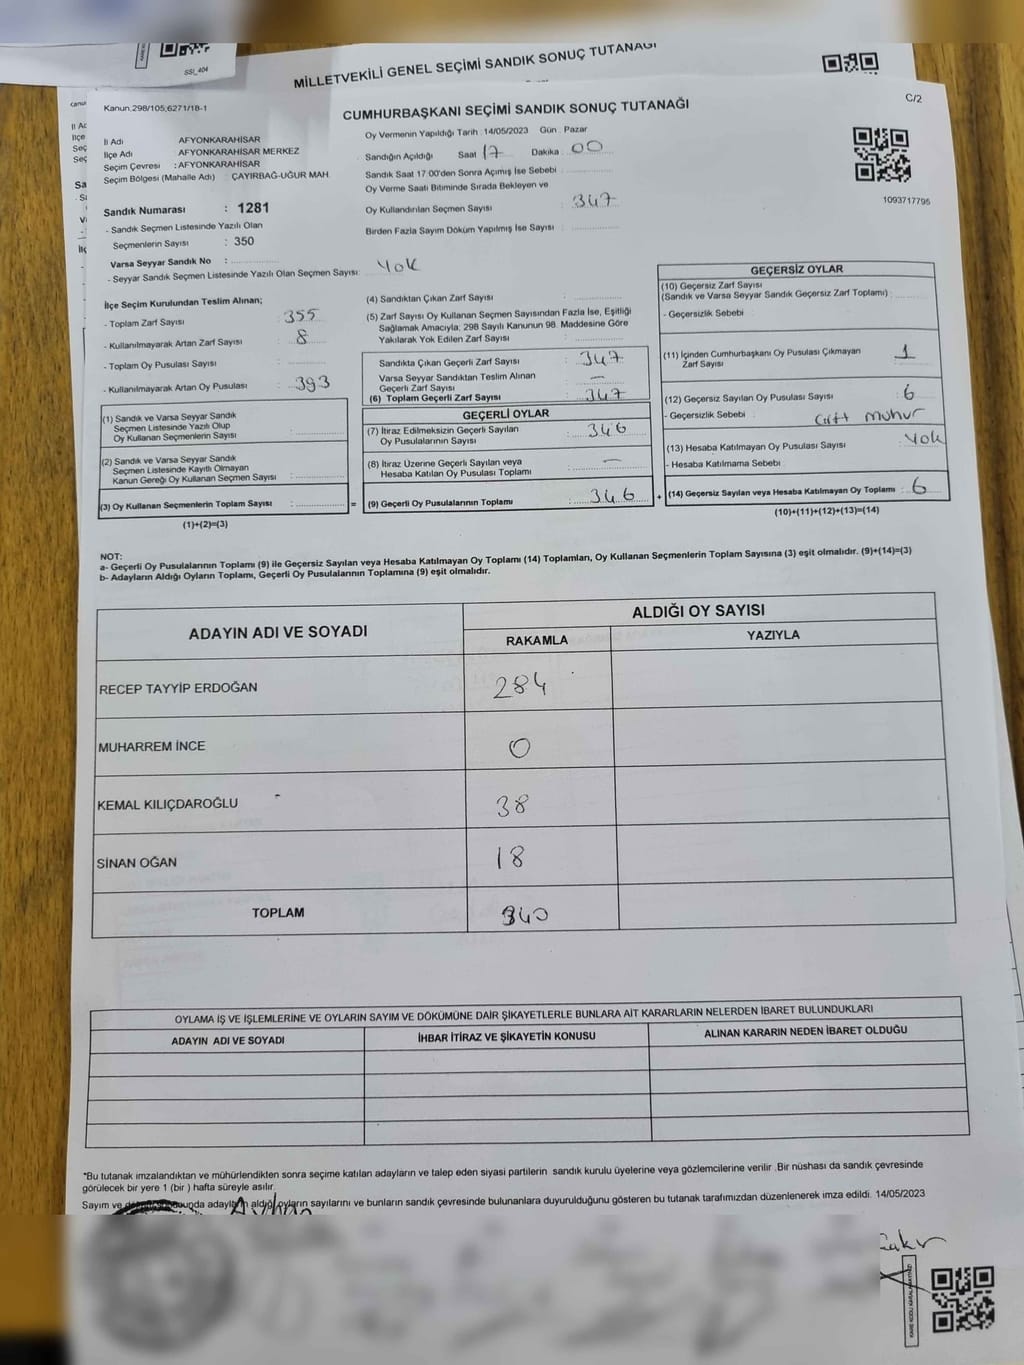 SSİ_404
MİLLETVEKİLİ GENEL SEÇİMİ SANDIK SONUÇ TUTANAĞI
Kanun,298/105;6271/18-1
CUMHURBAŞKANI SEÇİMİ SANDIK SONUÇ TUTANAĞI
C/2
İl Adı AFYONKARAHİSAR
İlçe Adı : AFYONKARAHİSAR MERKEZ
Seçim Çevresi : AFYONKARAHİSAR
Seçim Bölgesi (Mahalle Adı) : ÇAYIRBAĞ-UĞUR MAH.
Sandık Numarası : 1281
- Sandık Seçmen Listesinde Yazılı Olan
Seçmenlerin Sayısı : 350
Varsa Seyyar Sandık No :
- Seyyar Sandık Seçmen Listesinde Yazılı Olan Seçmen Sayısı: Yok
Oy Vermenin Yapıldığı Tarih :14/05/2023 Gün : Pazar
Sandığın Açıldığı Saat 17 Dakika : 00
Sandık Saat 17:00'den Sonra Açımış İse Sebebi :
Oy Verme Saati Bitiminde Sırada Bekleyen ve
Oy Kullandırılan Seçmen Sayısı : 347
Birden Fazla Sayım Döküm Yapılmış İse Sayısı :
1093717795
İlçe Seçim Kurulundan Teslim Alınan;
- Toplam Zarf Sayısı : 355
- Kullanılmayarak Artan Zarf Sayısı : 8
- Toplam Oy Pusulası Sayısı :
- Kullanılmayarak Artan Oy Pusulası : 393
(1) Sandık ve Varsa Seyyar Sandık
Seçmen Listesinde Yazılı Olup
Oy Kullanan Seçmenlerin Sayısı :
(2) Sandık ve Varsa Seyyar Sandık
Seçmen Listesinde Kayıtlı Olmayan
Kanun Gereği Oy Kullanan Seçmen Sayısı :
(3) Oy Kullanan Seçmenlerin Toplam Sayısı : =
(1)+(2)=(3)
(4) Sandıktan Çıkan Zarf Sayısı :
(5) Zarf Sayısı Oy Kullanan Seçmen Sayısından Fazla İse, Eşitliği
Sağlamak Amacıyla; 298 Sayılı Kanunun 98. Maddesine Göre
Yakılarak Yok Edilen Zarf Sayısı :
Sandıkta Çıkan Geçerli Zarf Sayısı : 347
Varsa Seyyar Sandıktan Teslim Alınan
Geçerli Zarf Sayısı : —
(6) Toplam Geçerli Zarf Sayısı : 347
GEÇERLİ OYLAR
(7) İtiraz Edilmeksizin Geçerli Sayılan
Oy Pusulalarının Sayısı : 346
(8) İtiraz Üzerine Geçerli Sayılan veya
Hesaba Katılan Oy Pusulası Toplamı : —
(9) Geçerli Oy Pusulalarının Toplamı : 346 +
GEÇERSİZ OYLAR
(10) Geçersiz Zarf Sayısı
(Sandık ve Varsa Seyyar Sandık Geçersiz Zarf Toplamı) :
- Geçersizlik Sebebi
(11) İçinden Cumhurbaşkanı Oy Pusulası Çıkmayan
Zarf Sayısı 1
(12) Geçersiz Sayılan Oy Pusulası Sayısı : 6
- Geçersizlik Sebebi : Çift mühür
(13) Hesaba Katılmayan Oy Pusulası Sayısı : Yok
- Hesaba Katılmama Sebebi
(14) Geçersiz Sayılan veya Hesaba Katılmayan Oy Toplamı : 6
(10)+(11)+(12)+(13)=(14)
NOT:
a- Geçerli Oy Pusulalarının Toplamı (9) ile Geçersiz Sayılan veya Hesaba Katılmayan Oy Toplamı (14) Toplamları, Oy Kullanan Seçmenlerin Toplam Sayısına (3) eşit olmalıdır. (9)+(14)=(3)
b- Adayların Aldığı Oyların Toplamı, Geçerli Oy Pusulalarının Toplamına (9) eşit olmalıdır.
ADAYIN ADI VE SOYADI
ALDIĞI OY SAYISI
RAKAMLA YAZIYLA
RECEP TAYYİP ERDOĞAN 284
MUHARREM İNCE 0
KEMAL KILIÇDAROĞLU 38
SİNAN OĞAN 18
TOPLAM 340
OYLAMA İŞ VE İŞLEMLERİNE VE OYLARIN SAYIM VE DÖKÜMÜNE DAİR ŞİKAYETLERLE BUNLARA AİT KARARLARIN NELERDEN İBARET BULUNDUKLARI
ADAYIN ADI VE SOYADI İHBAR İTİRAZ VE ŞİKAYETİN KONUSU ALINAN KARARIN NEDEN İBARET OLDUĞU
*Bu tutanak imzalandıktan ve mühürlendikten sonra seçime katılan adayların ve talep eden siyasi partilerin sandık kurulu üyelerine veya gözlemcilerine verilir .Bir nüshası da sandık çevresinde
görülecek bir yere 1 (bir ) hafta süreyle asılır.
Sayım ve adayların aldığı oyların sayılarını ve bunların sandık çevresinde bulunanlara duyurulduğunu gösteren bu tutanak tarafımızdan düzenlenerek imza edildi. 14/05/2023